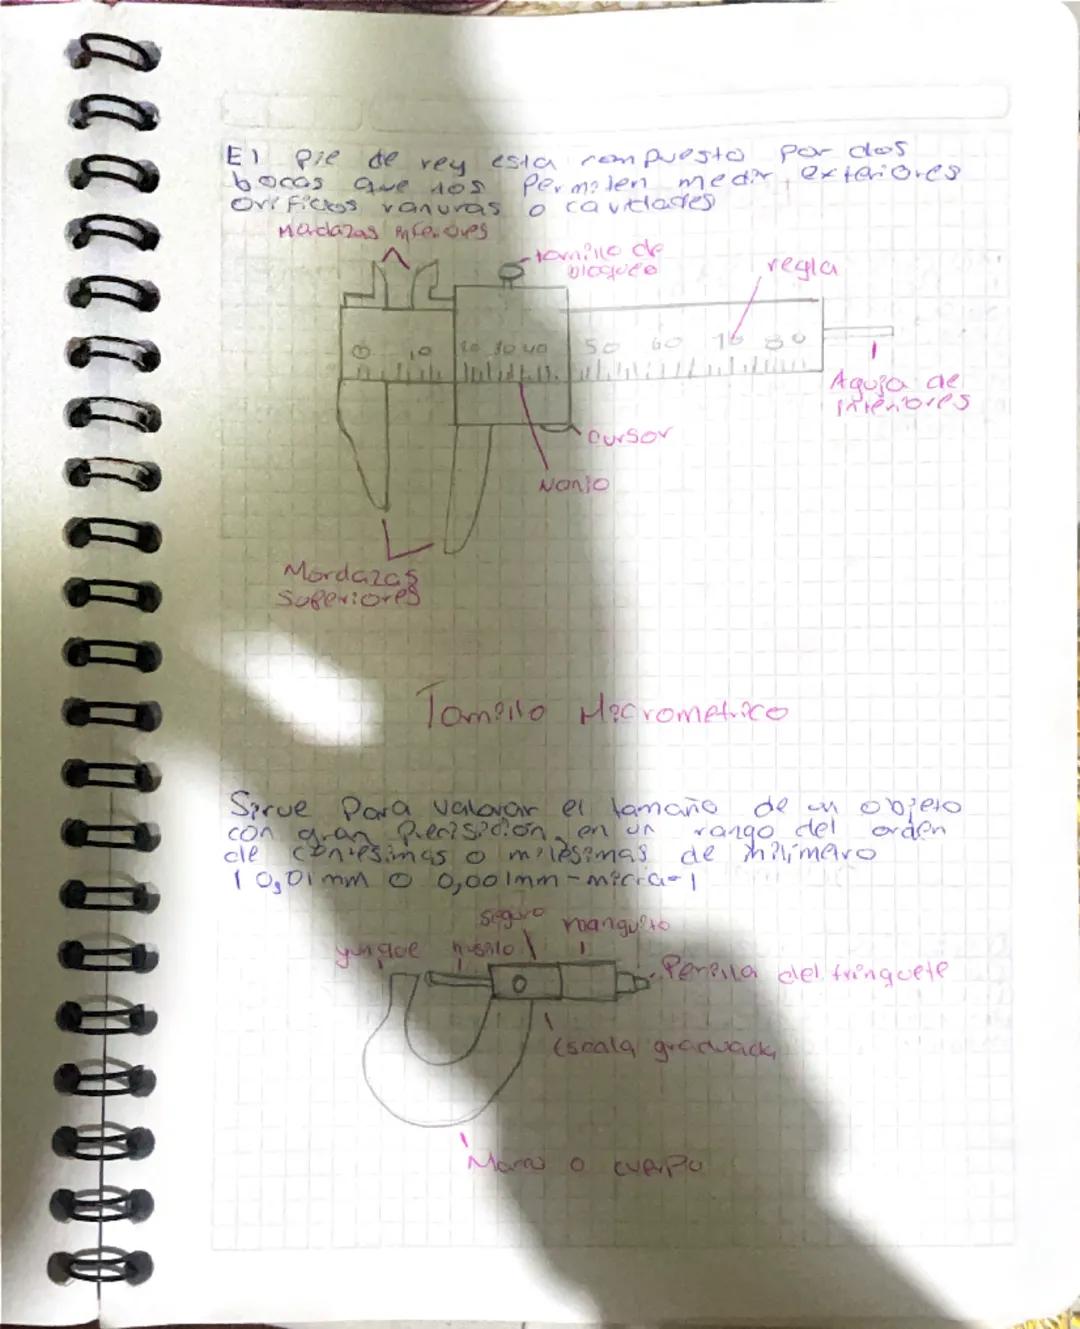 El pie de rey esta compuesto por dos
bocas que nos permiten medir exteriores
orificios ranuras o cavidades
Mordazas inferiores
tornillo de
bloqueo
regla
0 10 20 30 40 50 60 70 80
Aguja de
interiores
cursor
Nonio
Mordazas
Superiores
Tornillo Micrometrico
Sirve Para valorar el tamaño de un objeto
con gran Precisicion en un rango del orden
de centesimas o milesimas de milimetro
10,01mm o 0,001mm-micra-1
seguro manguito
yunque husillo
Perilla del trinquete
0
Escala graduada
Marco o cuerpo